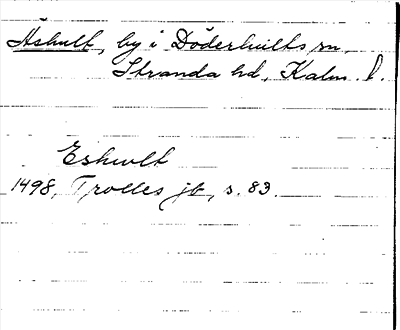 Äshult, by i Döderhults sn,
Stranda hd, Kalm. l.
Eshwlt
1498, Trolles jb, s. 83.